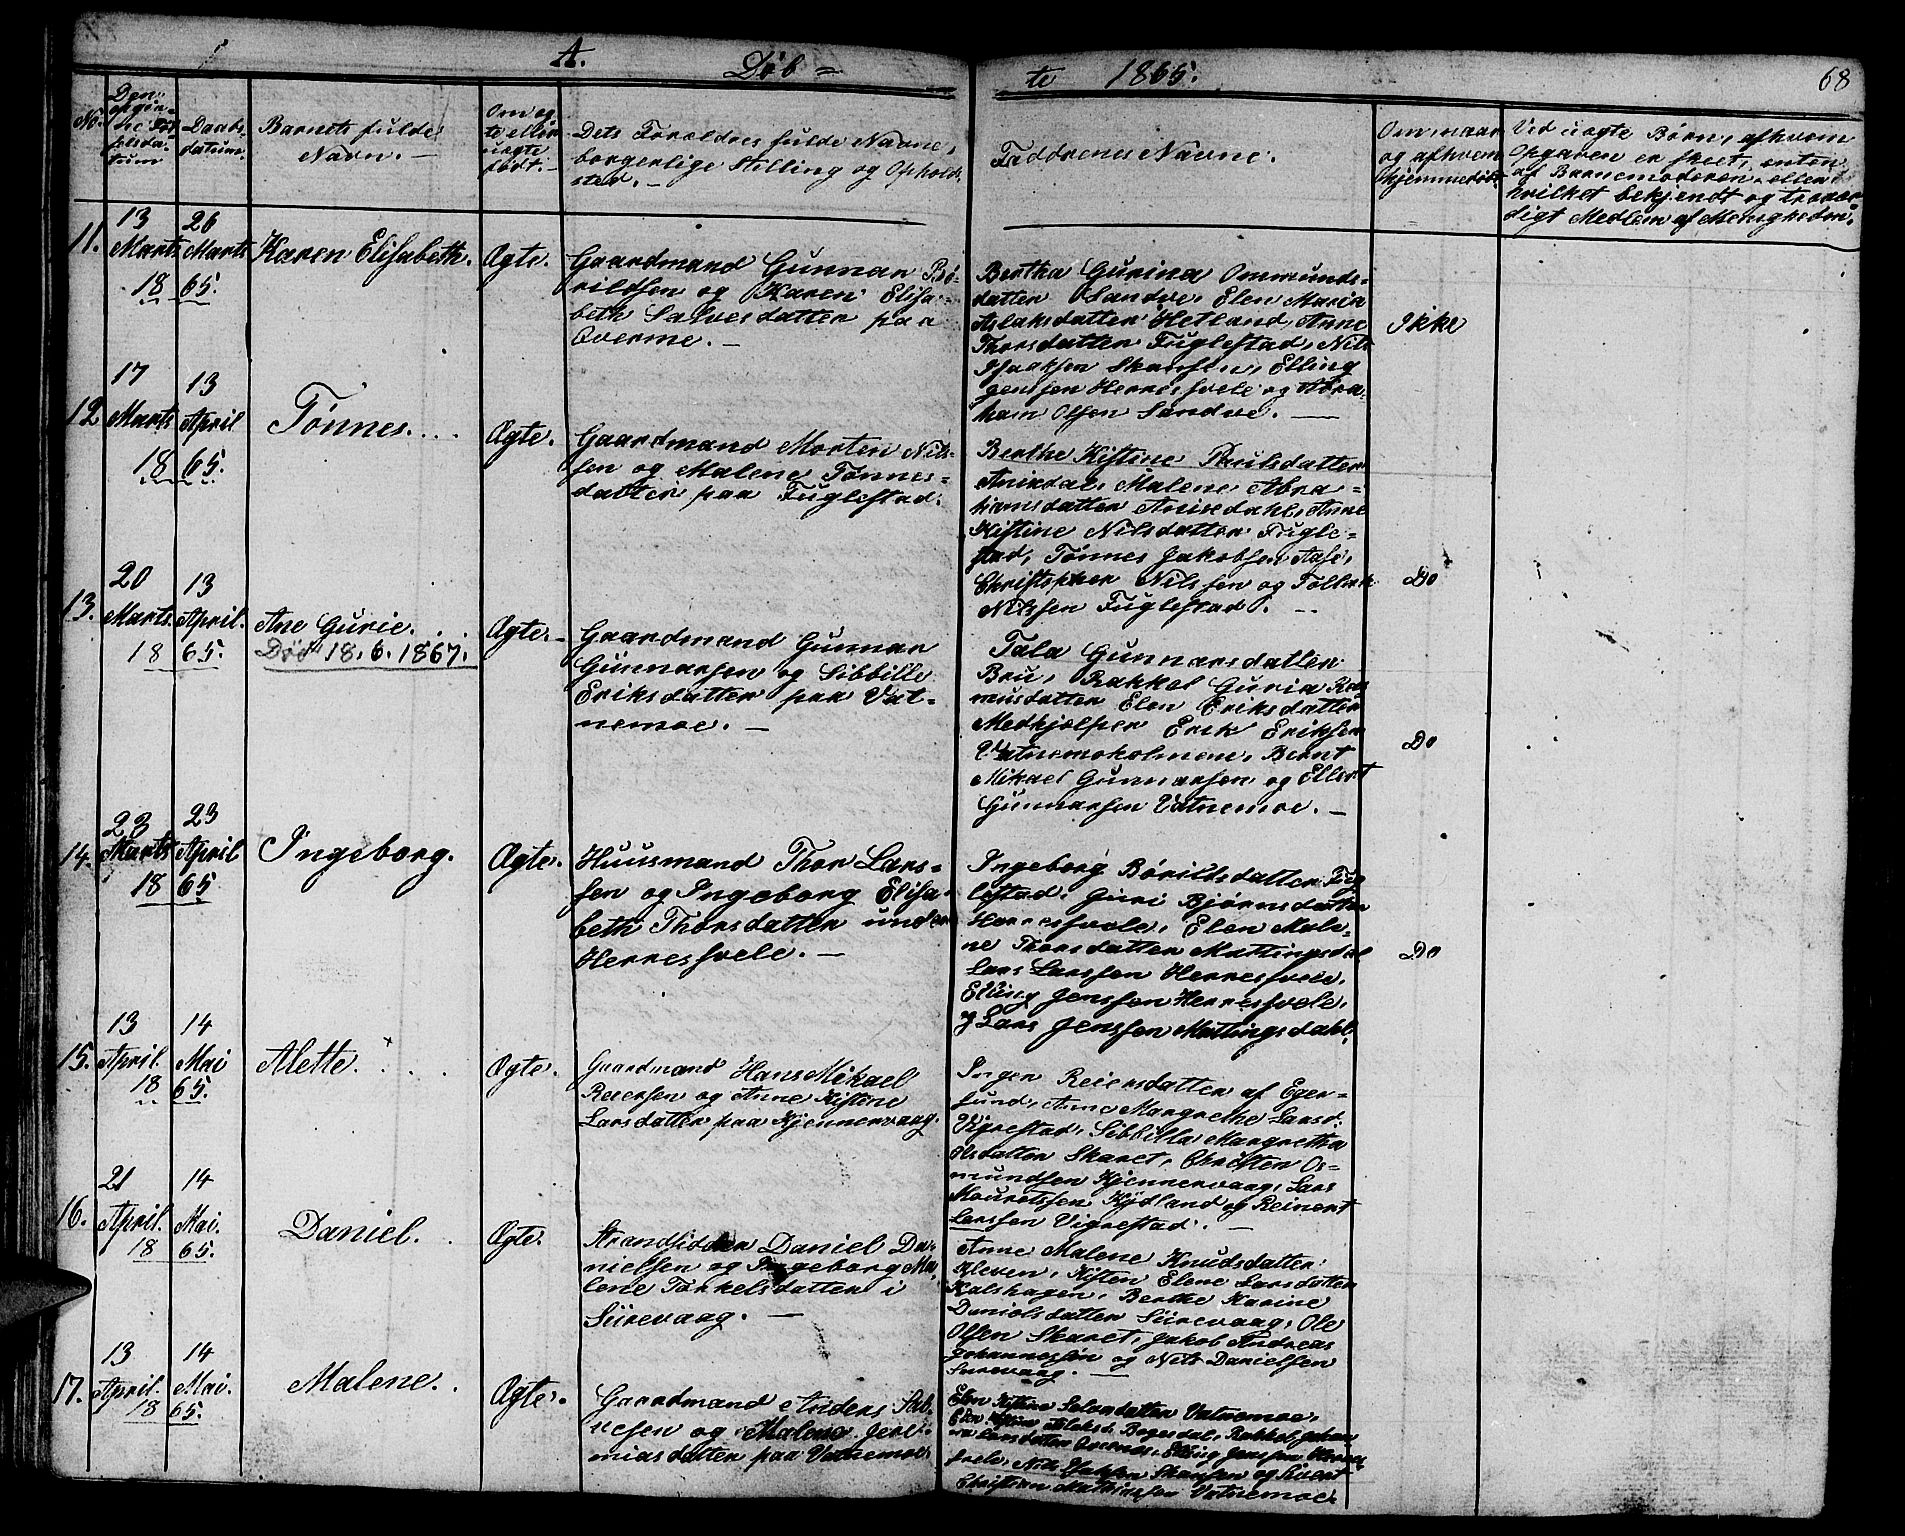 A.
Døb =
te 1865.
68
No.
Den
Daabs-
datum.
Barnets fulde
Navn. —
Om æg-
te eller
uægte
født. —
Dets Forældres fulde Navne,
borgerlige Stilling og Ophold-
sted. —
Faddrenes Navne.
Om, naar
og afhvem
hjemmedøbt
Ved uægte Børn, afhvem
Opgaven er skeet, enten
af Barnemoderen, eller
hvilket bekjendt og trovær-
digt Medlem af Menigheden.
11.
13
Marts
26
Marts
18 65.
Karen Elisabeth.
Ægte.
Gaardmand Gunnar Bø-
rildsen og Karen Elisa-
beth Salvesdatter paa
Överme. —
Bertha Gurina Ommunds-
datter Sandve, Elen Maria
Aslaksdatter Hetland, Anne
Thorsdatter Fuglestad, Nils
Isaaksen Skansen, Elling
Jenssen Herresvele og Abra-
ham Olsen Sandve. —
Ikke
12
17
Marts
13
April
18 65.
Tønnes.
Ægte.
Gaardmand Morten Nils-
sen og Malene Tønnes-
datter paa Fuglestad.
Berthe Kistine Thulsdatter
Anixdal, Malene Abra-
hamsdatter Anixdahl, Anne
Kistine Nilsdatter Fugle-
stad, Tønnes Jakobsen Aase,
Christopher Nilssen og Tollak
Nilssen Fuglestad. —
Do
13.
20
Marts
13
April.
18 65.
Ane Gurie.
Død 18.6.1867.
Ægte. —
Gaardmand Gunnar
Gunnarsen og Sibbille
Eriksdatter paa Vat-
nemoe. —
Tala Gunnarsdatter
Bru, Rakkel Guria Ras-
musdatter Elen Eriksdatter
Medhjælper Erik Eriksen
Vatnemoholmene, Bernt
Mikael Gunnarsen og Ellert
Gunnarsen Vatnemoe. —
Do
14.
23
Marts
23
April
18 65
Ingeborg.
Ægte.
Huusmand Thor Lars-
sen og Ingeborg Elisa-
beth Thorsdatter under
Herresvele. —
Ingeborg Børildsdatter Fug-
lestad. Guri Bjørnsdatter
Herresvele, Elen Male-
ne Thorsdatter Mattingsdal
Lars Larssen Herresvele,
Elling Jenssen Herresvele,
og Lars Jenssen Mattingsdahl.
Do
15.
13
April.
14
Mai
18 65.
Alette.
Ægte.
Gaardmand Hans Mikael
Reiersen og Anne Kistine
Larsdatter paa Kjennervaag.
Inger Reiersdatter af Eger-
sund, Anne Margrethe Larsd.
Vigrestad, Sibbilla Margretha
Olsdatter Skaret, Christen Os-
mundsen Kjennervaag, Lars
Mouretssen Kydland og Reinert
Larssen Vigrestad. —
16.
21
April.
14
Mai.
18 65.
Daniel.
Ægte.
Strandsidder Daniel Da-
nielsen og Ingeborg Ma-
lene Torkelsdatter i
Siirevaag. —
Anne Malene Knudsdatter
Kleven, Kisten Elene Larsdatter
Kalshagen, Berthe Karine
Danielsdatter Siirevaag, Ole
Olsen Skaret, Jakob Andreas
Johannessen og Nils Danielsen
Sirevaag. —
17.
13
April.
14
Mai.
18 65.
Malene.
Ægte.
Gaardmand Anders Sal-
vesen og Malene Jere-
miasdatter paa Vatnemoe
Elen Kistine Salvesdatter Vatnemoe,
Elling Jenssen Herres-
svele, Nils Isaksen Skansen og Sivert
Christian Mathiassen Vatnemoe.